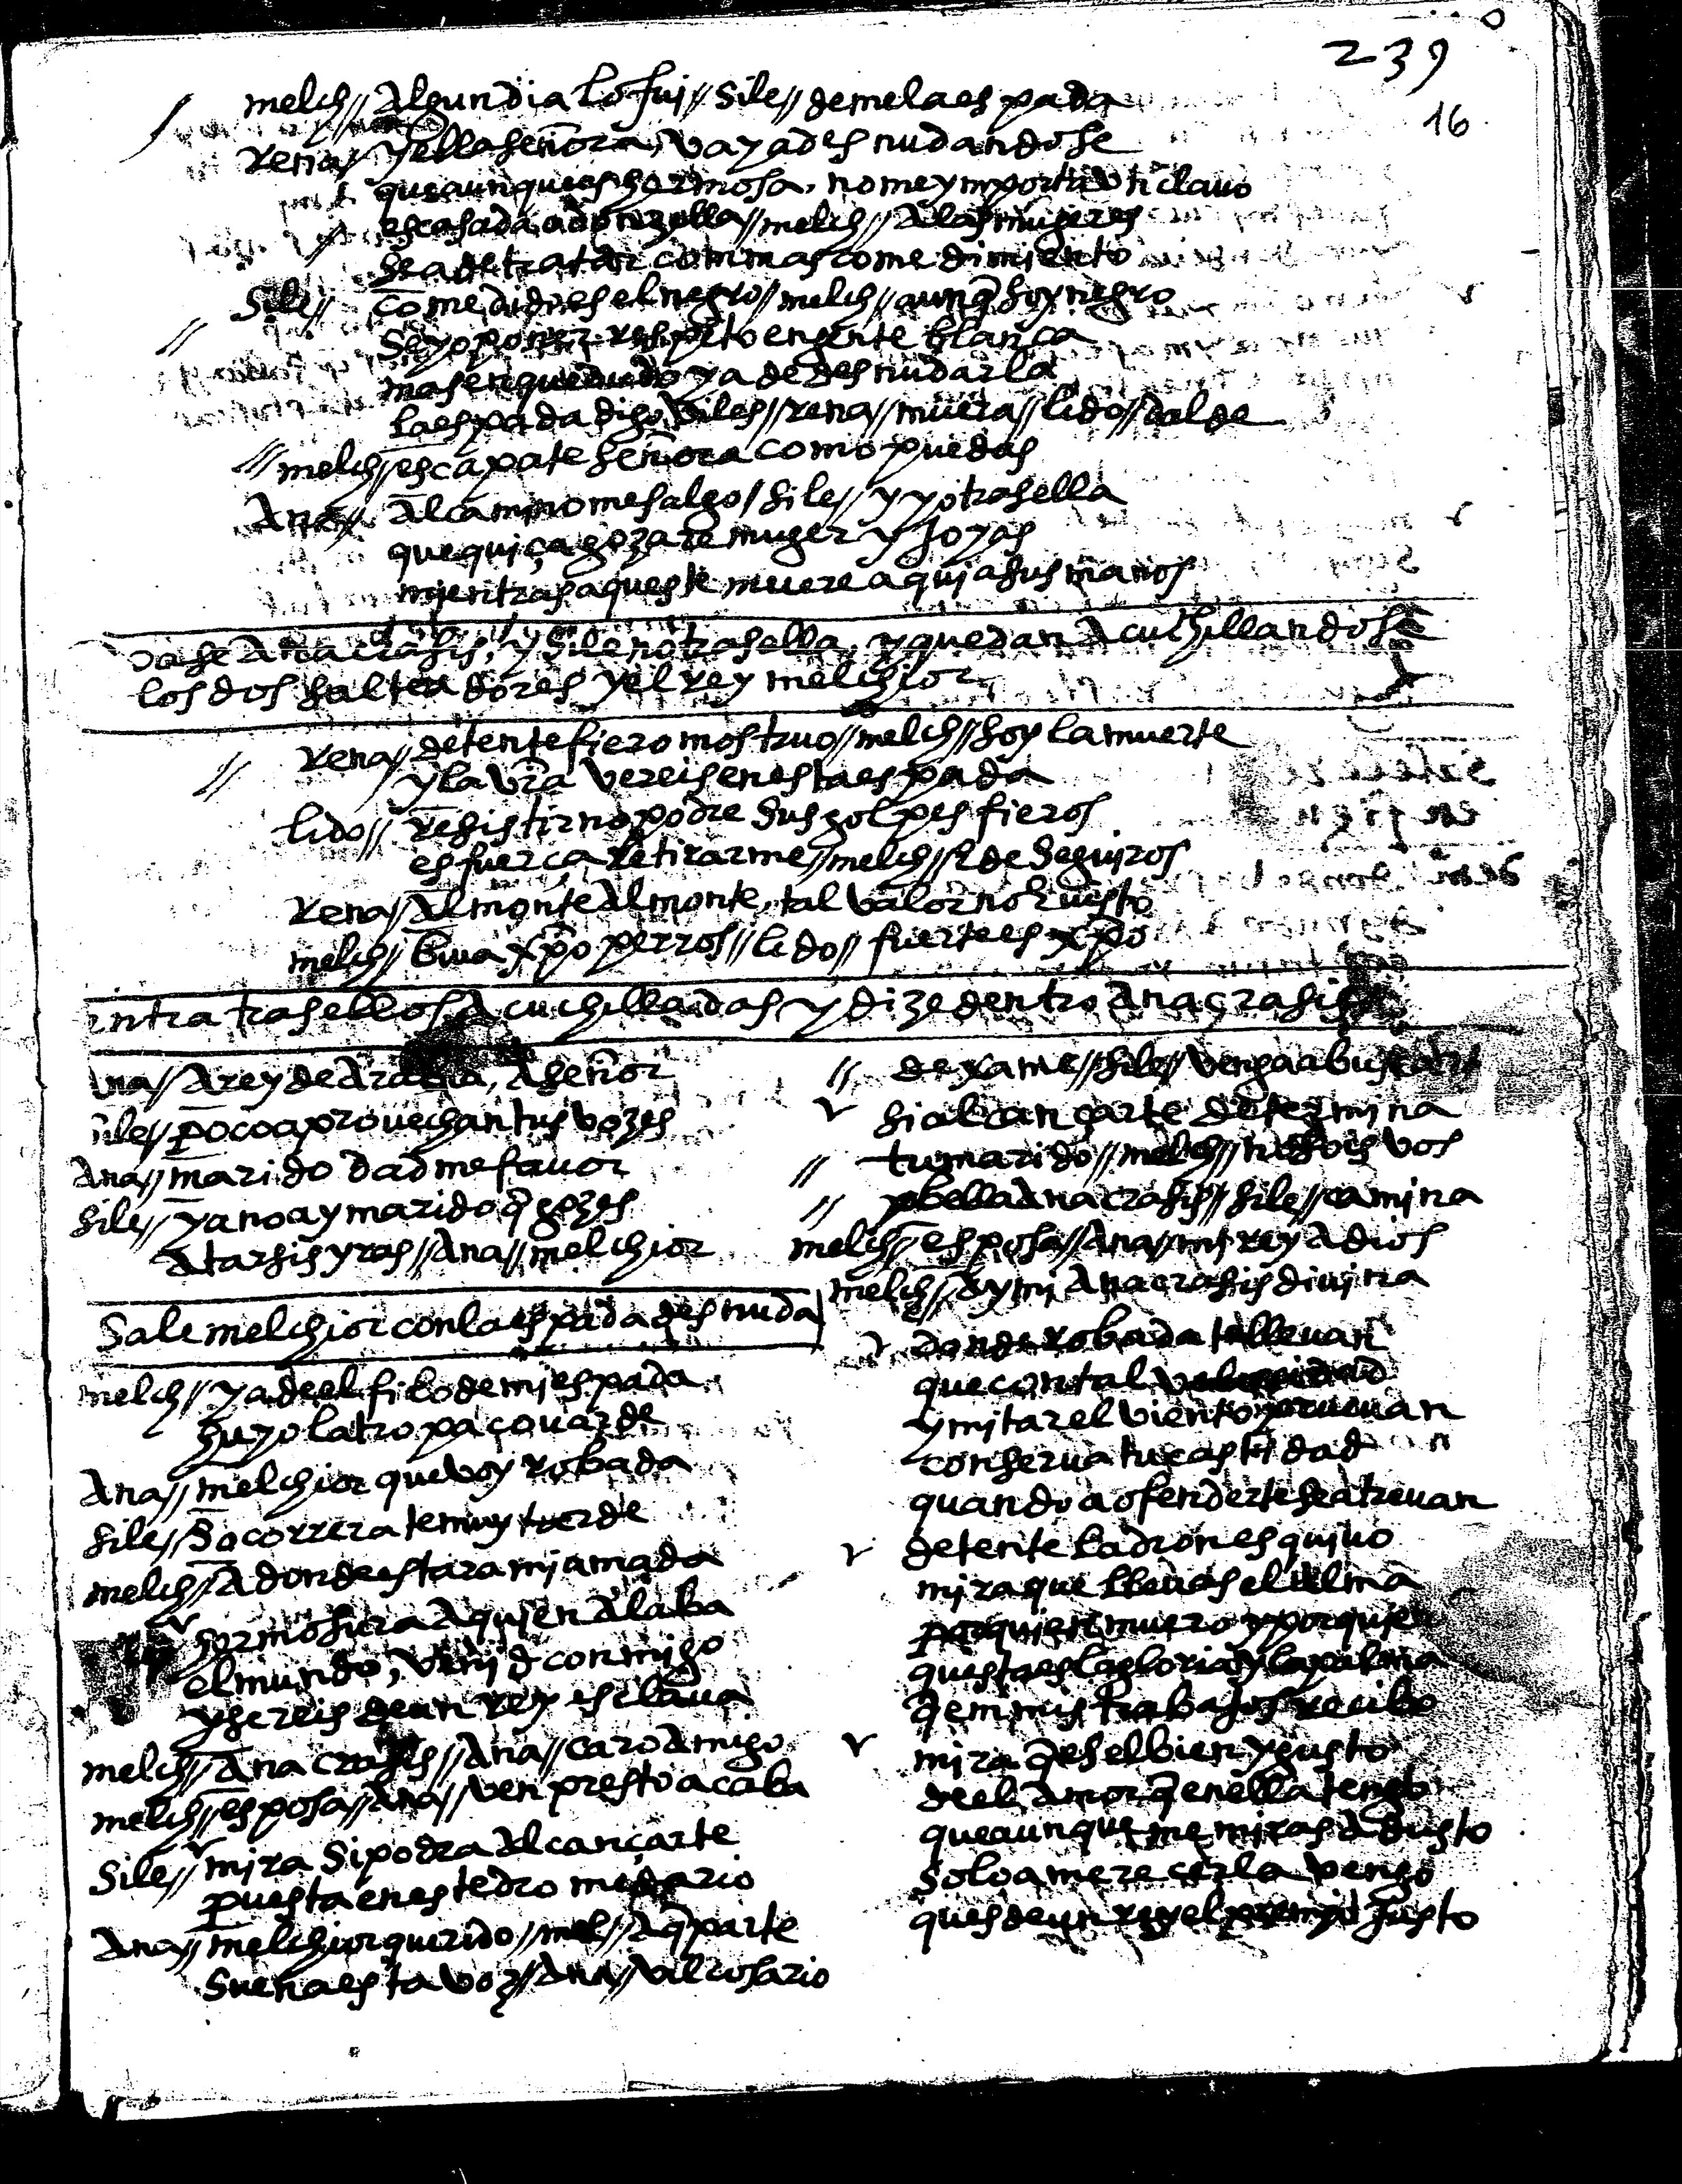 239
16
melch// Algun dia lo fui // Sile // demela espada
rena// y ella señora, vaya desnudandose
que aunque es hermosa, no me ymporta un clauo
es casada a donzella // melch // A las mugeres
se a de tratar com mas comedimiento
Sile// comedido es el negro // melch // aunq̃ soy negro
se yo poner respeto en gente blanca
mas en que dudo ya de desnudarla
la espada digo Viles // rena // muera // lido // dalde
// melch // escapate señora como puedas
Ana// Al camino me salgo / sile // y yo tras ella
que quiça gozare muger y joyas
mientras aqueste muere aqui a sus manos
vase Anacrasis, y Sileno tras ella, y quedan Acuchillandose
los dos salteadores y el rey melchior
rena// detente fiero mostruo // melch // soy la muerte
// y la vr̃a vereis en esta espada
lido// resistir no podre sus golpes fieros
es fuerça retirarme // melch // E de seguiros
rena// Al monte Al monte, tal valor no E uisto
melch// biua xp̃o perros // lido // fuerte es xp̃o
entra tras ellos A cuchilladas y dize dentro Anacrasis
Ana// A rey de Arabia, A señor
Sile// poco aprouechan tus vozes
Ana// marido dadme fauor
sile// ya no ay marido q̃ gozes
A tarsis yras // Ana // melchior
Sale melchior con la espada desnuda
melch// ya de el filo de mi espada
huyo la tropa couarde
Ana// melchior que voy robada
sile// Socorrerate muy tarde
melch// A donde estara mi amada
hermosura A quien Alaba
el mundo, venid conmigo
y sereis de un rey esclaua
melch// Anacrasis // Ana // caro Amigo
melch// esposa // Ana // ven presto acaba
Sile// mira si podra Alcançarte
puesta en este dromedario
Ana// melchior querido // mel // A q̃ parte
suena esta voz // Ana //
// dexame // sile // venga a buscarte
si alcançarte determina
// tu marido // melch // no sois vos
// bella Anacrasis // sile // camina
melch// esposa // Ana // mi rey A dios
melch// Ay mi Anacrasis diuina
donde robada te lleuan
que con tal velocidad
ymitar el viento prueuan
conserua tu castidad
quando a ofenderte se atreuan
detente ladron esquiuo
mira que lleuas el alma
por quien muero y por quien
questa es la gloria y la palma
q̃ en mis trabajos recibo
mira q̃ es el bien y gusto
de el Amor q̃ en ella tengo
que aunque me miras Adusto
solo a merecerla vengo
ques de un rey el premio justo